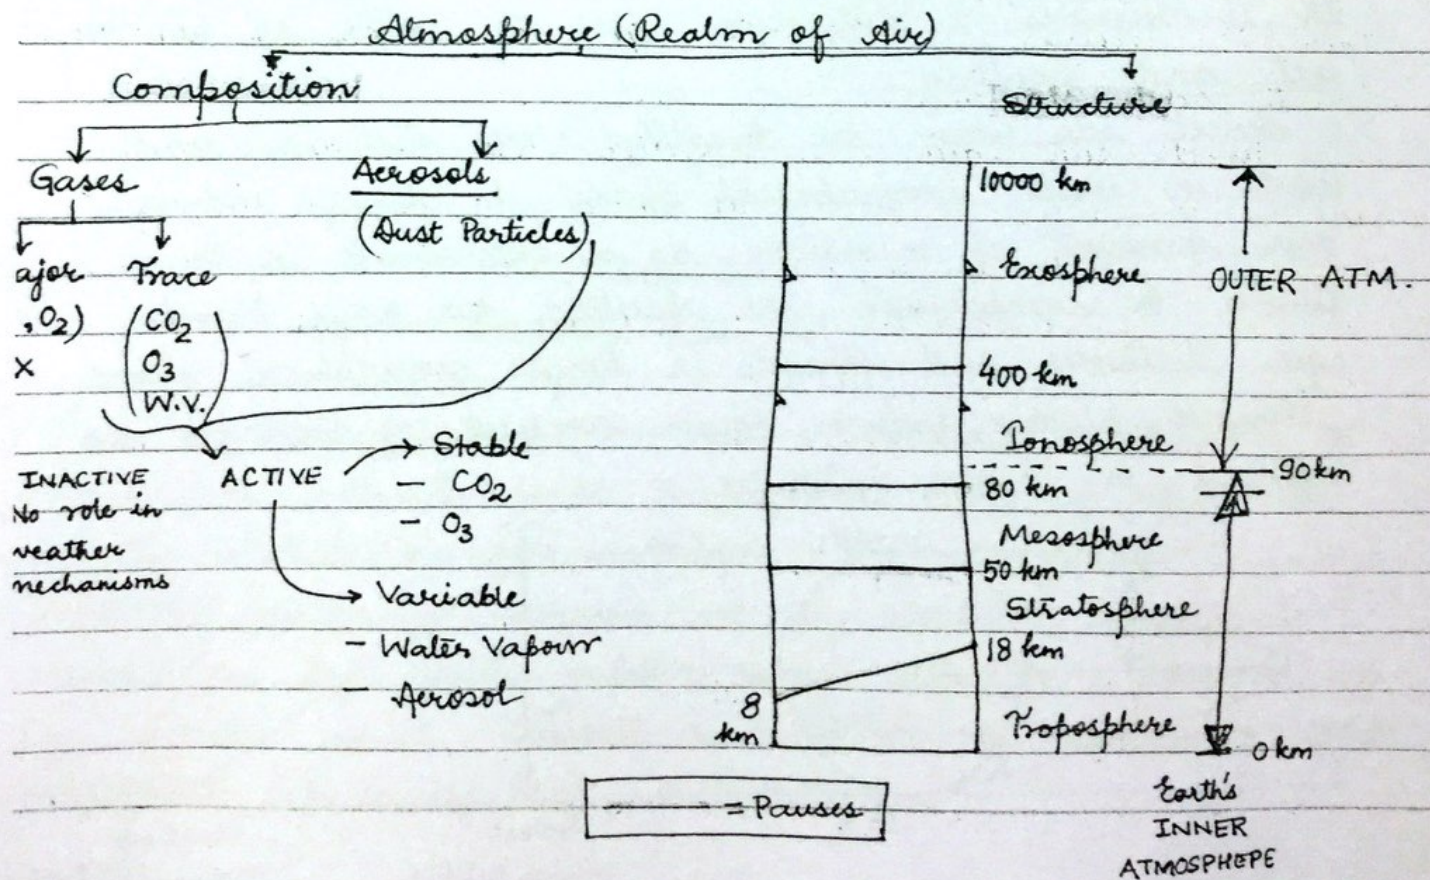 Atmosphere (Realm of Air)
Composition
Structure
Gases
Aerosols
(Dust Particles)
ajor
Trace
, O₂)
(CO₂
O₃
W.V.)
x
INACTIVE
No role in
veather
nechanisms
ACTIVE
Stable
- CO₂
- O₃
Variable
- Water Vapour
- Aerosol
10000 km
Exosphere
OUTER ATM.
400 km
Ionosphere
90 km
80 km
Mesosphere
50 km
Stratosphere
18 km
8
km
Troposphere
0 km
= Pauses
Earth's
INNER
ATMOSPHEPE